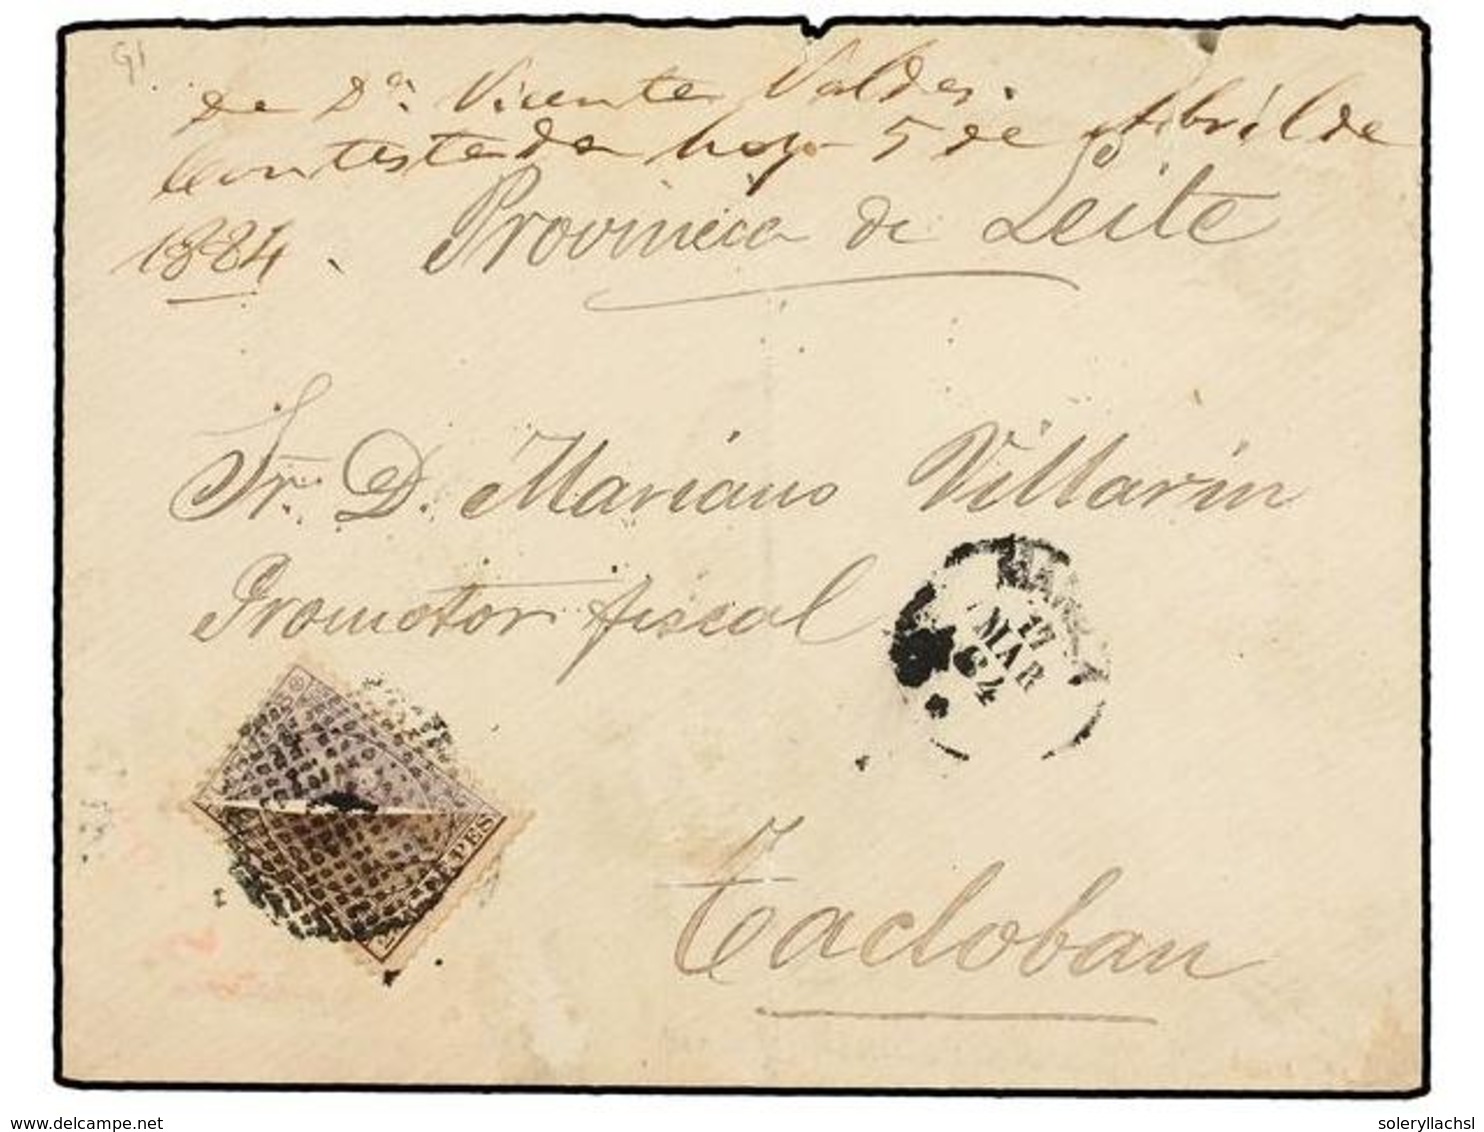 G1
de Dn. Vicente Valdes.
Contestada hoy 5 de Abril de
1884.
Provincia de Leite
Sr. D. Mariano Villarin
Promotor fiscal
17
MAR
84
PES
Tacloban
delcampe.net
soleryllachsl